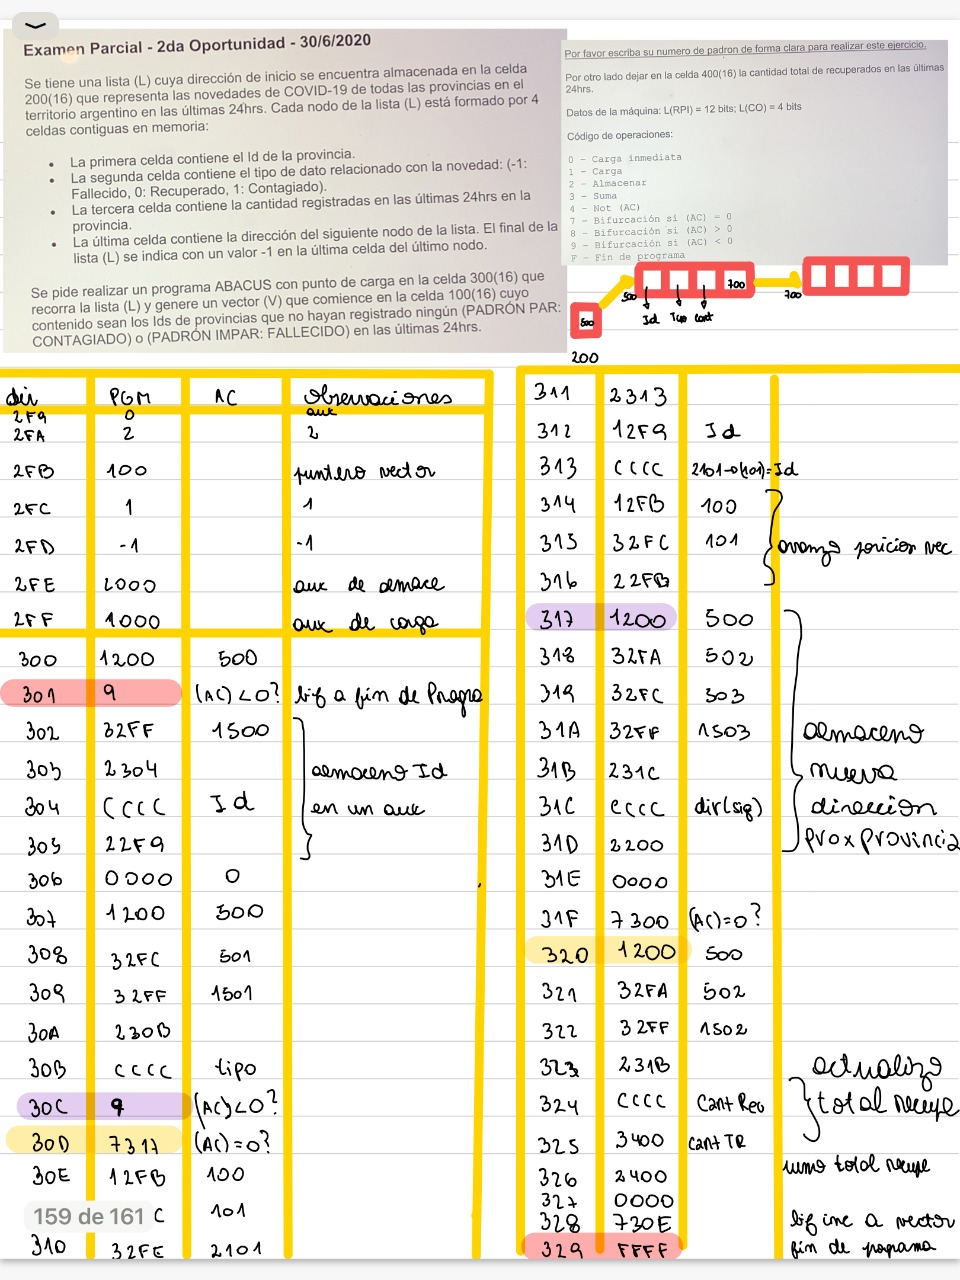 Examen Parcial - 2da Oportunidad - 30/6/2020
Se tiene una lista (L) cuya dirección de inicio se encuentra almacenada en la celda
200(16) que representa las novedades de COVID-19 de todas las provincias en el
territorio argentino en las últimas 24hrs. Cada nodo de la lista (L) está formado por 4
celdas contiguas en memoria:
• La primera celda contiene el Id de la provincia.
• La segunda celda contiene el tipo de dato relacionado con la novedad: (-1:
Fallecido, 0: Recuperado, 1: Contagiado).
• La tercera celda contiene la cantidad registradas en las últimas 24hrs en la
provincia.
• La última celda contiene la dirección del siguiente nodo de la lista. El final de la
lista (L) se indica con un valor -1 en la última celda del último nodo.
Se pide realizar un programa ABACUS con punto de carga en la celda 300(16) que
recorra la lista (L) y genere un vector (V) que comience en la celda 100(16) cuyo
contenido sean los Ids de provincias que no hayan registrado ningún (PADRÓN PAR:
CONTAGIADO) o (PADRÓN IMPAR: FALLECIDO) en las últimas 24hrs.
Por favor escriba su numero de padron de forma clara para realizar este ejercicio.
Por otro lado dejar en la celda 400(16) la cantidad total de recuperados en las últimas
24hrs.
Datos de la máquina: L(RPI) = 12 bits; L(CO) = 4 bits
Código de operaciones:
0 - Carga inmediata
1 - Carga
2 - Almacenar
3 - Suma
4 - Not (AC)
7 - Bifurcación si (AC) = 0
8 - Bifurcación si (AC) > 0
9 - Bifurcación si (AC) < 0
F - Fin de programa
500 700 700
500 Id Tipo cant
200
dir PGM AC observaciones
2F9 0 aux
2FA 2 2
2FB 100 puntero vector
2FC 1 1
2FD -1 -1
2FE 2000 aux de almace
2FF 1000 aux de carga
300 1200 500
301 9 (AC)<0? bif a fin de Progra
302 32FF 1500
303 2304 almaceno Id
304 CCCC Id en un aux
305 22F9
306 0000 0
307 1200 500
308 32FC 501
309 32FF 1501
30A 230B
30B CCCC tipo
30C 9 (AC)<0?
30D 7317 (AC)=0?
30E 12FB 100
C 101
310 32FE 2101
159 de 161
311 2313
312 12F9 Id
313 CCCC 2101→(101)=Id
314 12FB 100
315 32FC 101 avanzo posicion vec
316 22FB
317 1200 500
318 32FA 502
319 32FC 503
31A 32FF 1503 almaceno
31B 231C nueva
31C CCCC dir(sig) direccion
31D 2200 prox provincia
31E 0000
31F 7300 (AC)=0?
320 1200 500
321 32FA 502
322 32FF 1502
323 231B actualizo
324 CCCC Cant Rec total recupe
325 3400 cant TR
326 2400 sumo total recupe
327 0000
328 730E bif inc a vector
329 FFFF fin de programa